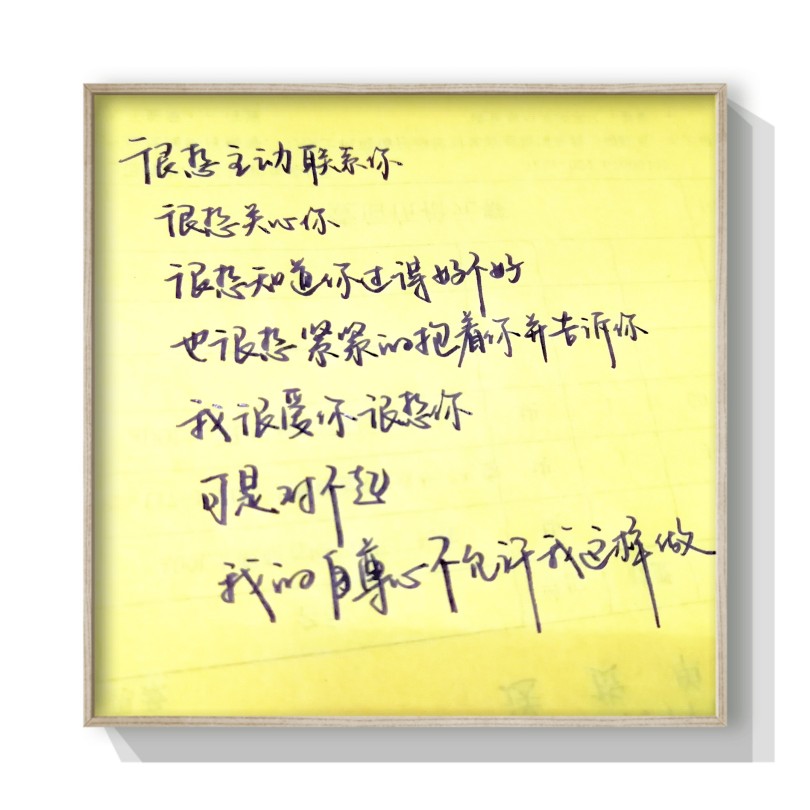 很想主动联系你
很想关心你
很想知道你过得好不好
也很想紧紧的抱着你并告诉你
我很爱你很想你
可是对不起
我的自尊心不允许我这样做